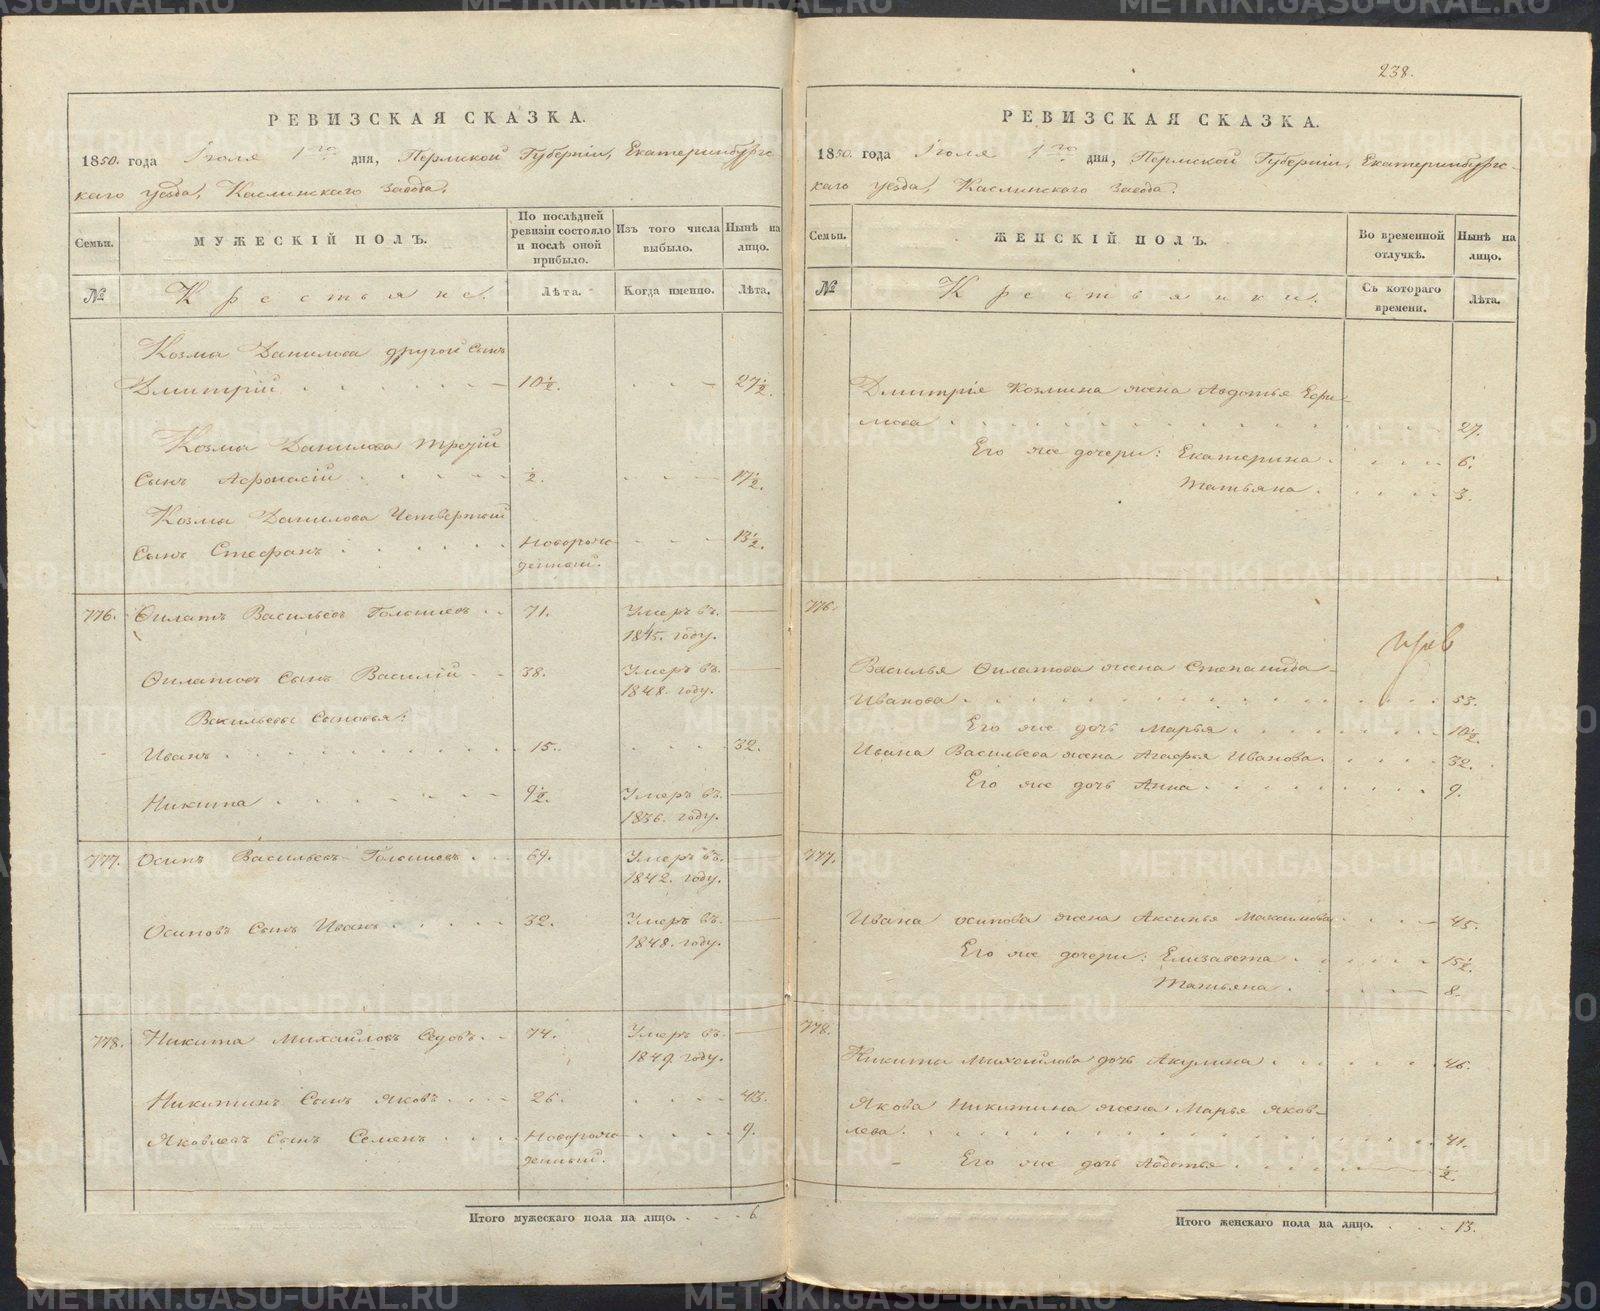 РЕВИЗСКАЯ СКАЗКА.
1850. года Іюля 1го дня, Пермской Губерніи, Екатеринбургс-
каго уезда, Каслинскаго завода.
Семьи.
МУЖЕСКІЙ ПОЛЪ.
По послѣдней ревизіи состояло и послѣ оной прибыло.
Изъ того числа выбыло.
Нынѣ на лицо.
№
Крестьяне.
Лѣта.
Когда именно.
Лѣта.
Козмы Данилова другой сынъ
Дмитрій 10½. 27½.
Козмы Данилова третій
Сынъ Афонасій ½. 17½.
Козмы Данилова Четвертый
Сынъ Стефанъ Новорож- 13½.
денный.
776. Филатъ Васильевъ 71. Умеръ въ
1845. году.
Филатовъ Сынъ Василій 38. Умеръ въ
1848. году.
Васильевы Сыновья:
Иванъ 15. 32.
Никита 9½. Умеръ въ
1836. году.
777. Осипъ Васильевъ 69. Умеръ въ
1842. году.
Осиповъ Сынъ Иванъ 32. Умеръ въ
1848. году.
778. Никита Михайловъ Седовъ 74. Умеръ въ
1849. году.
Никитинъ Сынъ Яковъ 26. 43.
Яковлевъ Сынъ Семенъ Новорож- 9.
денный.
Итого мужескаго пола на лицо. 6.
238.
РЕВИЗСКАЯ СКАЗКА.
1850. года Іюля 1го дня, Пермской Губерніи, Екатеринбургс-
каго уезда, Каслинскаго завода.
Семьи.
ЖЕНСКІЙ ПОЛЪ.
Во временной отлучкѣ.
Нынѣ на лицо.
№
Крестьянки.
Съ котораго времени.
Лѣта.
Дмитрія Козмина жена Авдотья Ефи-
мова 27.
Его же дочери: Екатерина 6.
Татьяна 3.
776.
Василья Филатова жена Степанида
Иванова 53.
Его же дочь Марья 10½.
Ивана Васильева жена Агафья Иванова 32.
Его же дочь Анна 9.
777.
Ивана Осипова жена Аксинья Максимова 45.
Его же дочери: Елизавета 15½.
Татьяна 8.
778.
Никиты Михайлова дочь Акулина 46.
Якова Никитина жена Марья Яков-
лева 41.
Его же дочь Авдотья ½.
Итого женскаго пола на лицо. 13.
METRIKI.GASO-URAL.RU